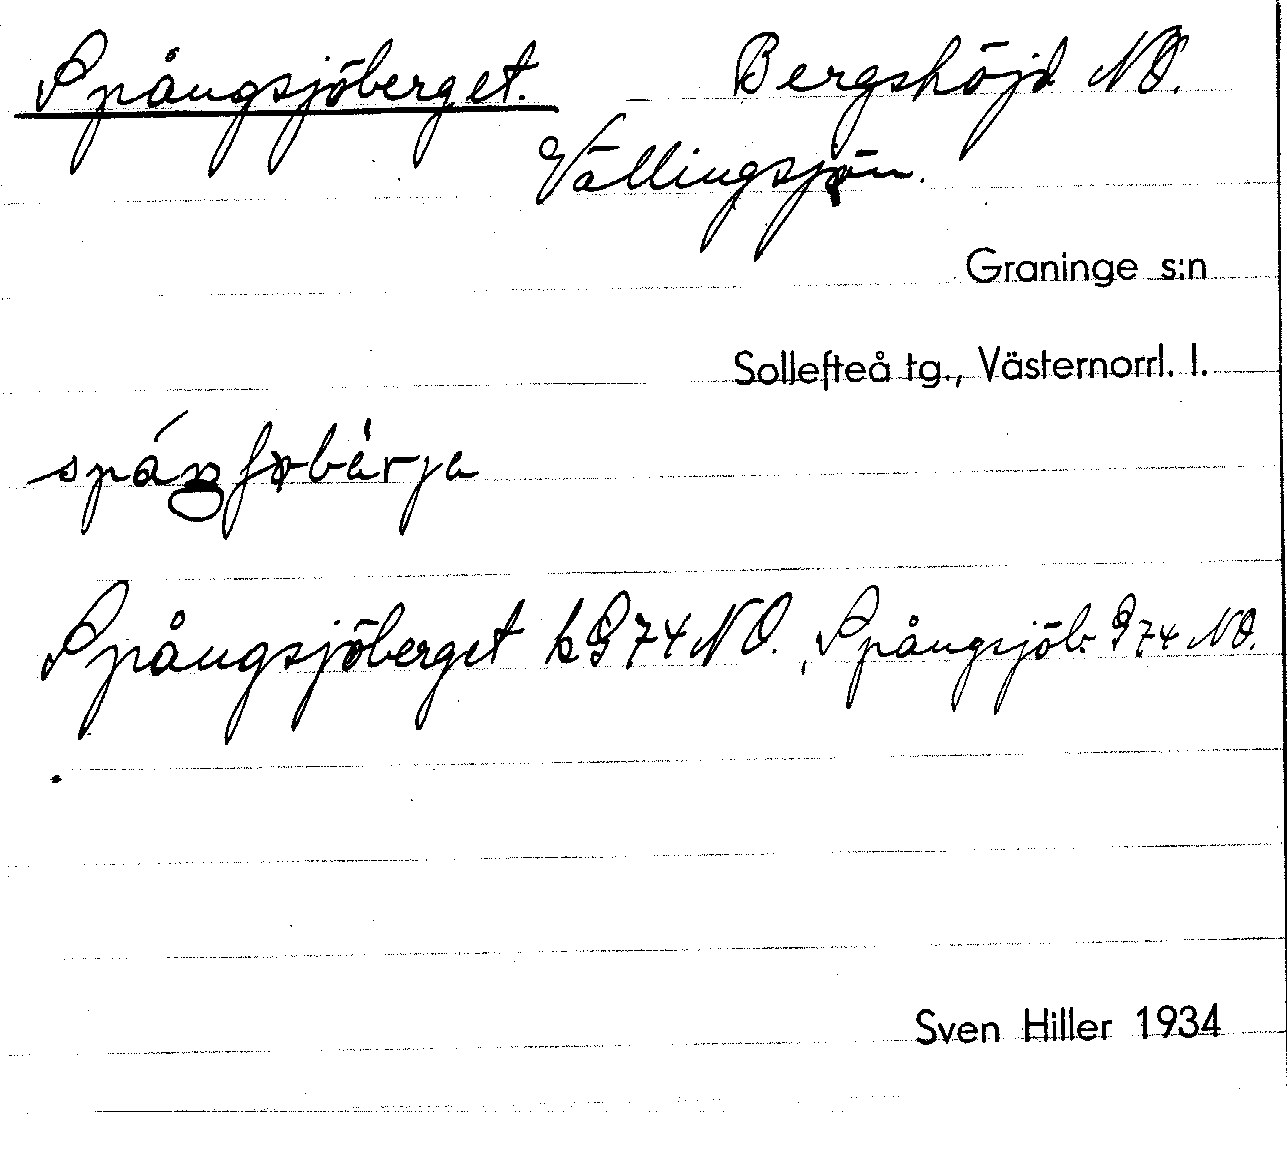 Spångsjöberget. Bergshöjd NO.
Vällingsjön.
Graninge s:n
Sollefteå tg., Västernorrl. l.
Spångsjöberget k G 74 NO. Spångsjöb. G 74 NO.
Sven Hiller 1934